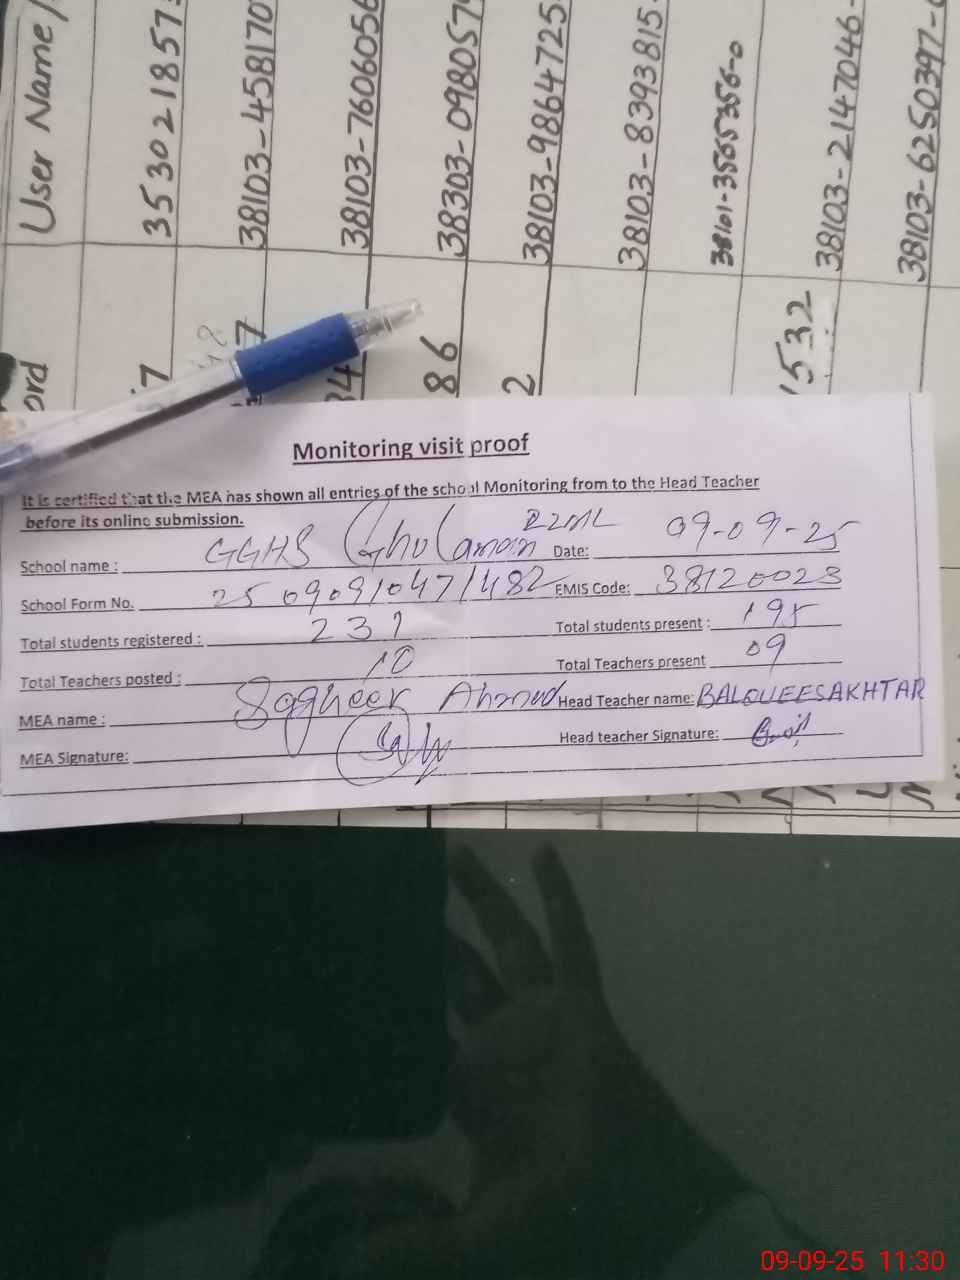 User Name/
35302 1857
38103-458170
38103-7606056
38303-098057
38103-9864725
38103-8393815
38101-3565356-0
38103-2147046-
38103-6250397-
ord
86
2
1532
Monitoring visit proof
It is certified that the MEA has shown all entries of the school Monitoring from to the Head Teacher
before its online submission.
School name : GGHS Gholaman 22ML Date: 09-09-25
School Form No. 25090910471482 EMIS Code: 38120023
Total students registered : 231 Total students present : 195
Total Teachers posted : 10 Total Teachers present 09
MEA name : Sagheer Ahmad Head Teacher name: BALQUEESAKHTAR
MEA Signature: Head teacher Signature:
09-09-25 11:30